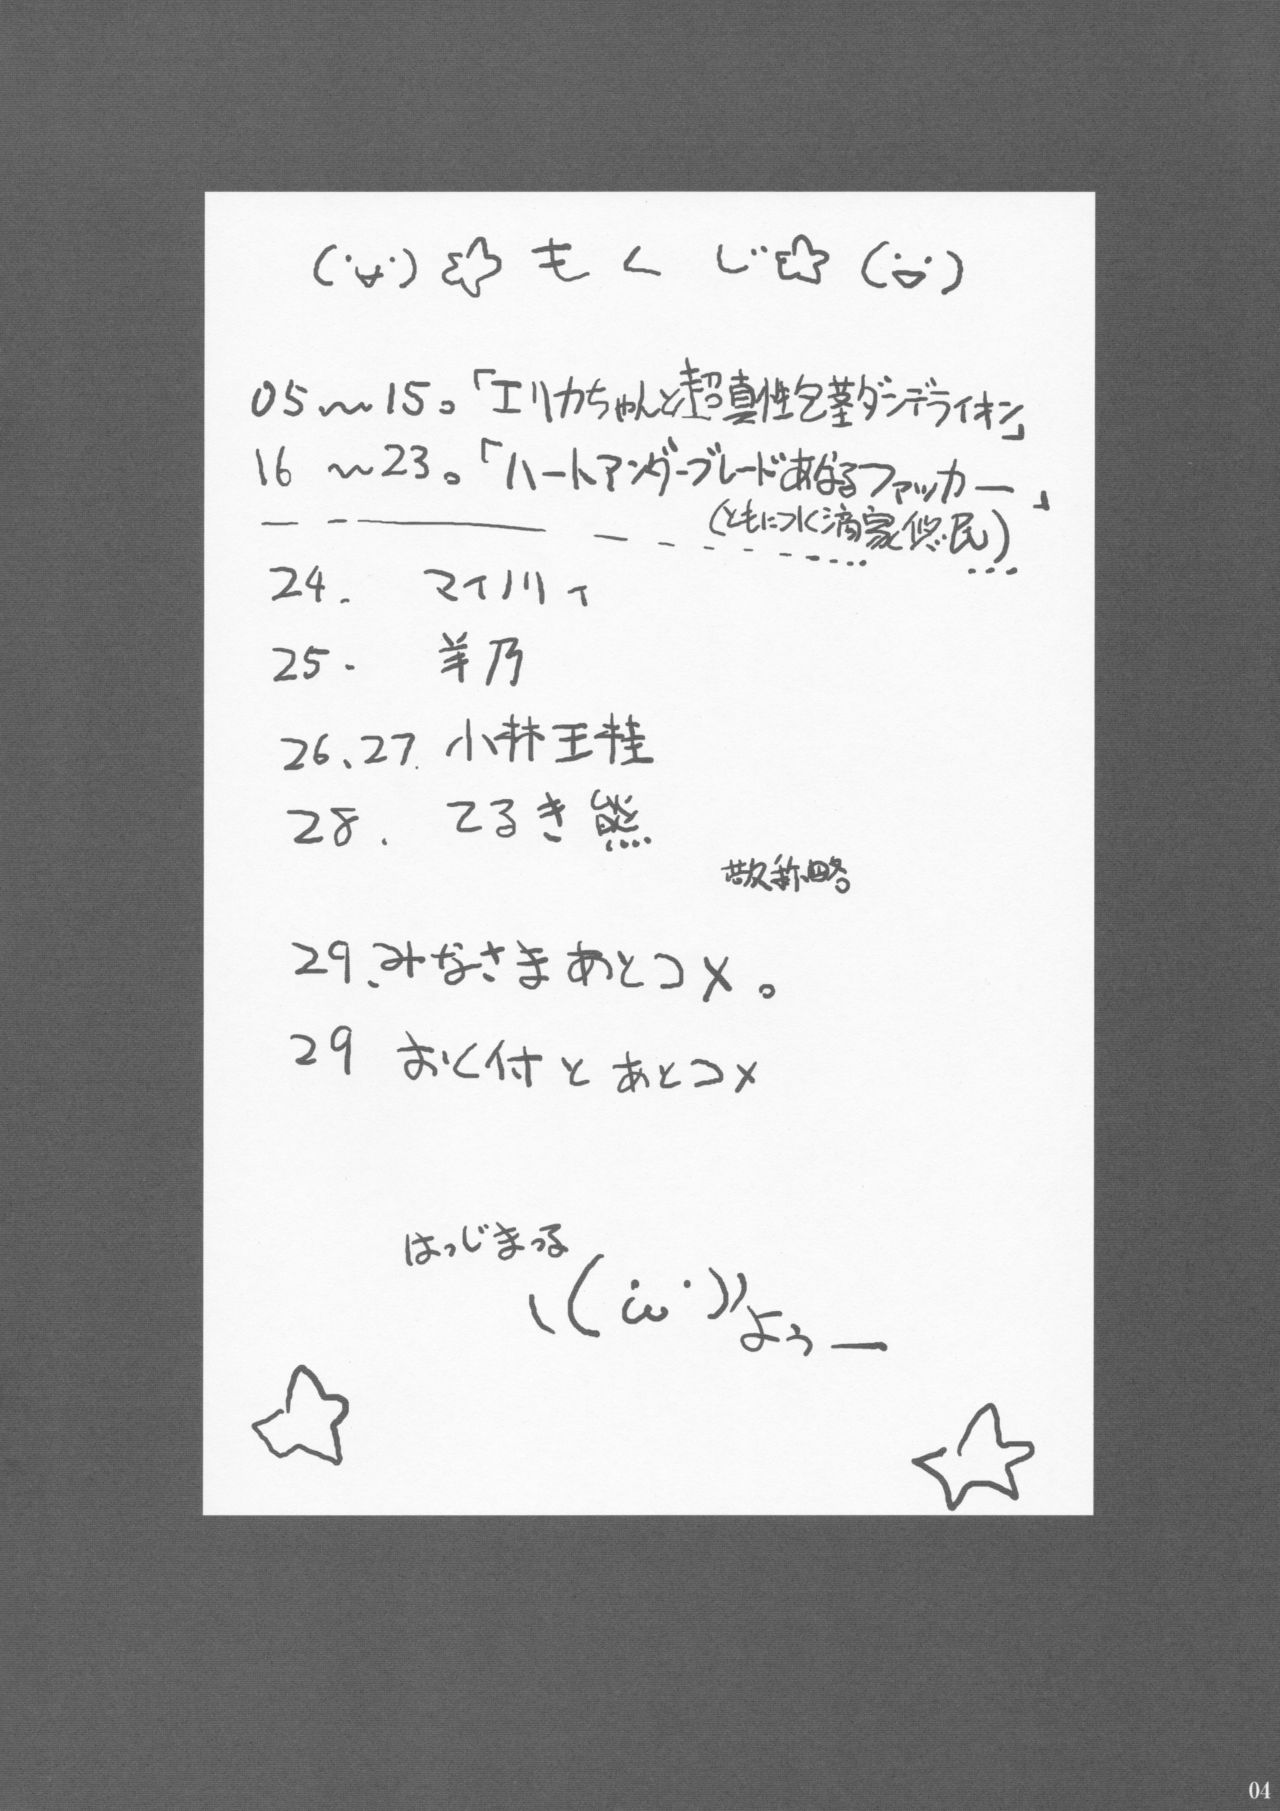 (˙∀˙)☆もくじ☆(˙▽˙)
05〜15。「エリカちゃんと超真性包茎ダンデライオン」
16〜23。「ハートアンダーブレードあなるファッカー」
(ともに水滴家悠民)
24. マイノリィ
25. 羊乃
26、27. 小林王桂
28. てるき熊
敬称略。
29、みなさまあとコメ。
29 おく付とあとコメ
はっじまっる
\(˙ω˙)ノ
よぅー
04